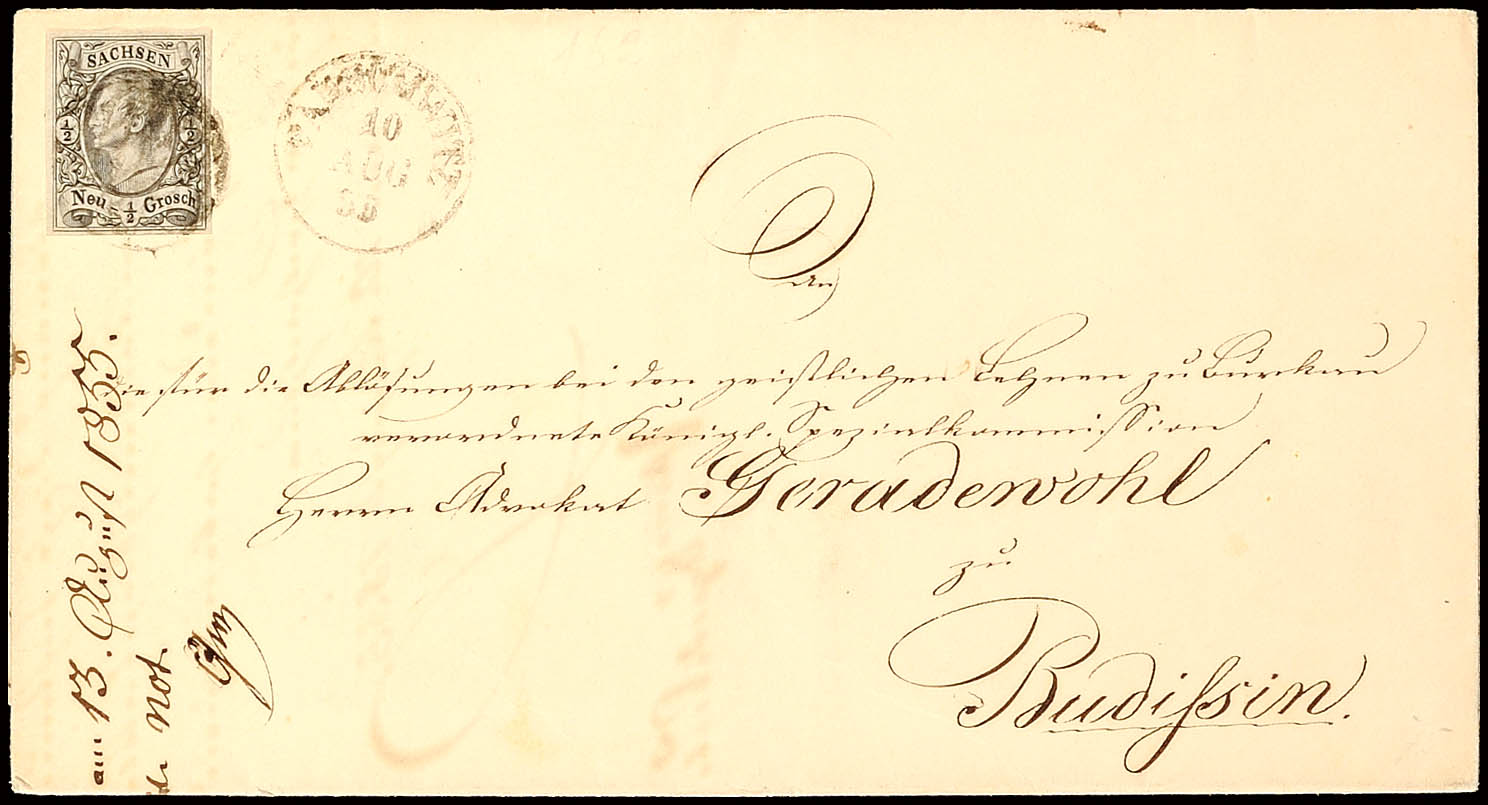 SACHSEN
½ ½
Neu- ½ Grosch
10
AUG
55
An
die für die Ablösungen bei den geistlichen Lehnen zu Burkau
verordnete Königl. Spezialkommission
Herrn Advokat Geradewohl
zu
Budissin.
am 13. August 1855.
not.